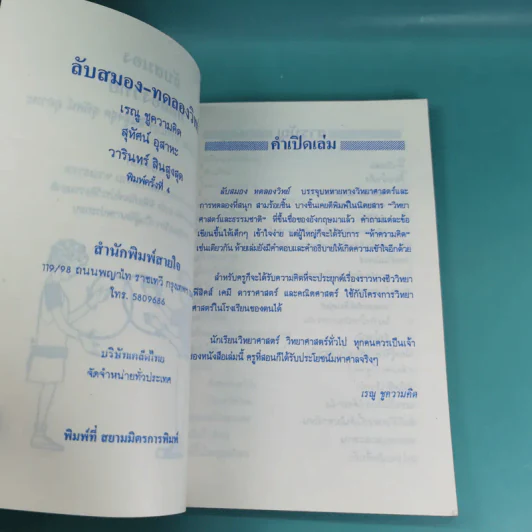 ลับสมอง-ทดลองวิท
เรณู ชูความคิด
สุทัศน์ อุสาหะ
วารินทร์ สินสูงสุด
พิมพ์ครั้งที่
สำนักพิมพ์สายใจ
119/98 ถนนพญาไท ราชเทวี กรุงเทพฯ
โทร. 5809686
บริษัทเคล็ดไทย
จัดจำหน่ายทั่วประเทศ
พิมพ์ที่ สยามมิตรการพิมพ์
คำเปิดเล่ม
ลับสมอง ทดลองวิทย์ บรรจุบทหายทางวิทยาศาสตร์และ
การทดลองที่สนุก สามร้อยชิ้น บางชิ้นเคยตีพิมพ์ในนิตยสาร "วิทยา
ศาสตร์และธรรมชาติ" ที่ขึ้นชื่อของอังกฤษมาแล้ว คำถามแต่ละข้อ
เขียนขึ้นให้เด็กๆ เข้าใจง่าย แต่ผู้ใหญ่ก็จะได้รับการ "ท้าความคิด"
เช่นเดียวกัน ท้ายเล่มยังมีคำตอบและคำอธิบายให้เกิดความเข้าใจอีกด้วย
สำหรับครูก็จะได้รับความคิดที่จะประยุกต์เรื่องราวทางชีววิทยา
ฟิสิคส์ เคมี ดาราศาสตร์ และคณิตศาสตร์ ใช้กับโครงการวิทยา
ศาสตร์ในโรงเรียนของตนได้
นักเรียนวิทยาศาสตร์ วิทยาศาสตร์ทั่วไป ทุกคนควรเป็นเจ้า
ของหนังสือเล่มนี้ ครูที่สอนก็ได้รับประโยชน์มหาศาลจริงๆ
เรณู ชูความคิด